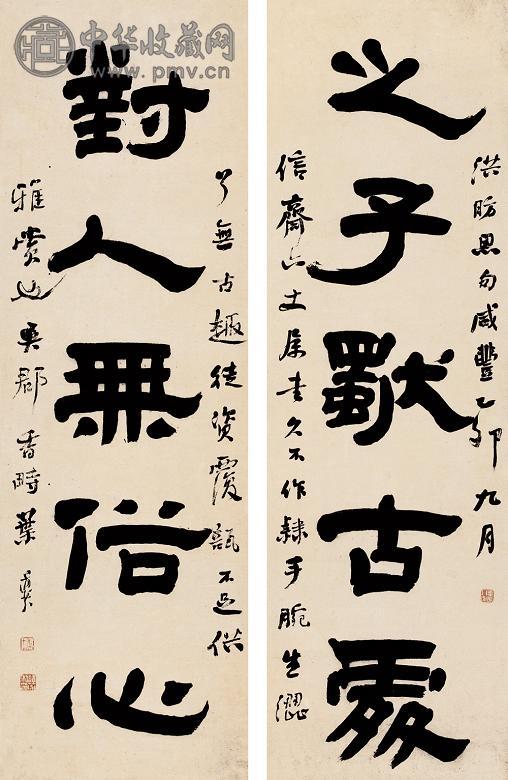 中华收藏网
www.pmv.cn
洪昉思句咸豐乙卯九月
之子獨古處
信齋六丈屬書久不作隸手腕生澀
了無古趣徒資覆瓿不足供
對人無俗心
雅賞也吳郡香畤葉